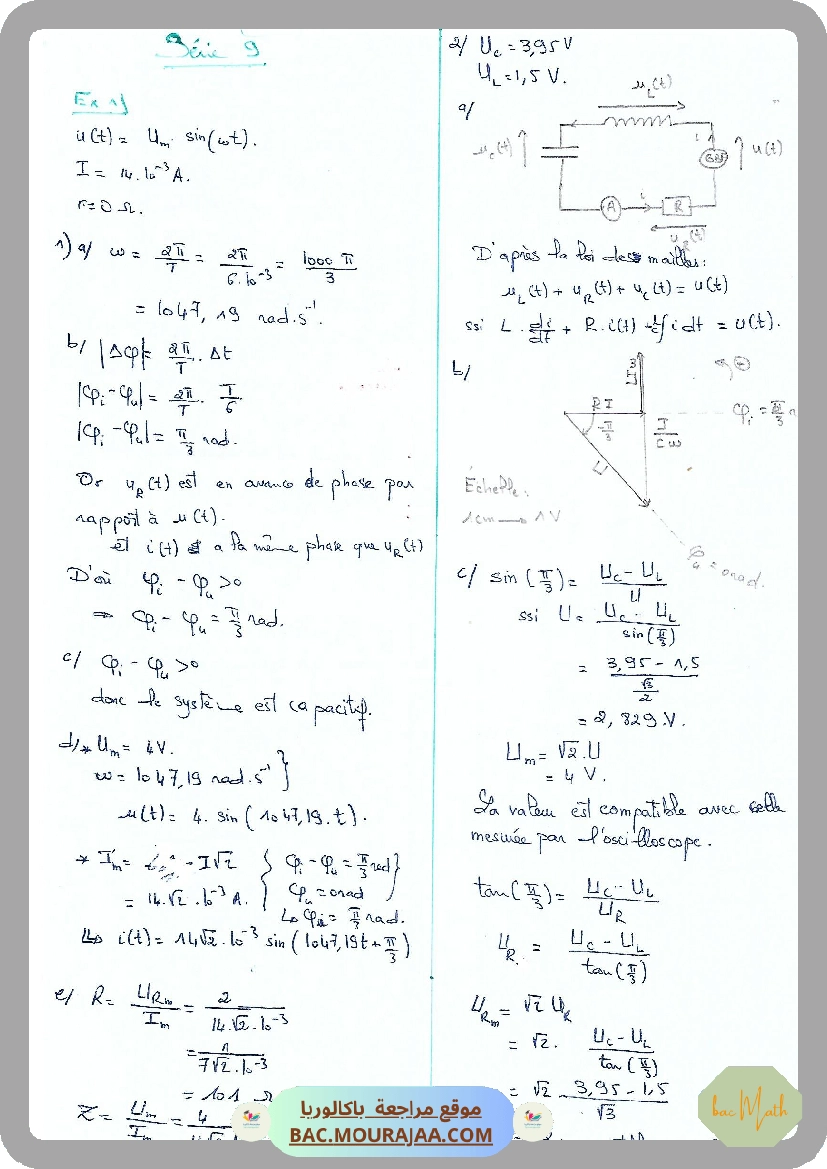 Série 9
Ex 1)
u(t) = Um. sin(ωt).
I = 14.10⁻³ A.
r = 0 Ω.
1) a/ ω = 2π/T = 2π/6.10⁻³ = 1000 π/3
= 1047,19 rad.s⁻¹.
b/ |Δφ| = 2π/T . Δt
|φi - φu| = 2π/T . T/6
|φi - φu| = π/3 rad.
Or uR(t) est en avance de phase par
rapport à u(t).
et i(t) a la même phase que uR(t)
D'où φi - φu > 0
⇒ φi - φu = π/3 rad.
c/ φi - φu > 0
donc le système est capacitif.
d/ * Um = 4V.
ω = 1047,19 rad.s⁻¹ }
u(t) = 4. sin(1047,19.t).
* Im = I√2 { φi - φu = π/3 rad }
= 14.√2.10⁻³ A. { φu = 0 rad
↳ φi = π/3 rad.
↳ i(t) = 14√2.10⁻³ sin(1047,19t + π/3)
e/ R = URm/Im = 2/14.√2.10⁻³
= 1/7√2.10⁻³
= 101 Ω
Z = Um/Im = 4
2/ Uc = 3,95 V
UL = 1,5 V.
a/
uL(t)
uc(t)
i
GBF
u(t)
A
i
R
uR(t)
D'après la loi des mailles:
uL(t) + uR(t) + uc(t) = u(t)
ssi L . di/dt + R.i(t) + 1/c ∫i dt = u(t).
b/
LIω
⊕
RI
φi = π/3 r
-π/3
I/Cω
U
Échelle:
1cm → 1V
φu = 0 rad.
c/ sin(π/3) = UC - UL/U
ssi U = UC - UL/sin(π/3)
= 3,95 - 1,5/(√3/2)
= 2,829 V.
Um = √2.U
= 4 V.
La valeur est compatible avec celle
mesurée par l'oscilloscope.
tan(π/3) = UC - UL/UR
UR = UC - UL/tan(π/3)
URm = √2 UR
= √2. UC - UL/tan(π/3)
= √2 3,95 - 1,5/√3
موقع مراجعة باكالوريا
BAC.MOURAJAA.COM
bac Math